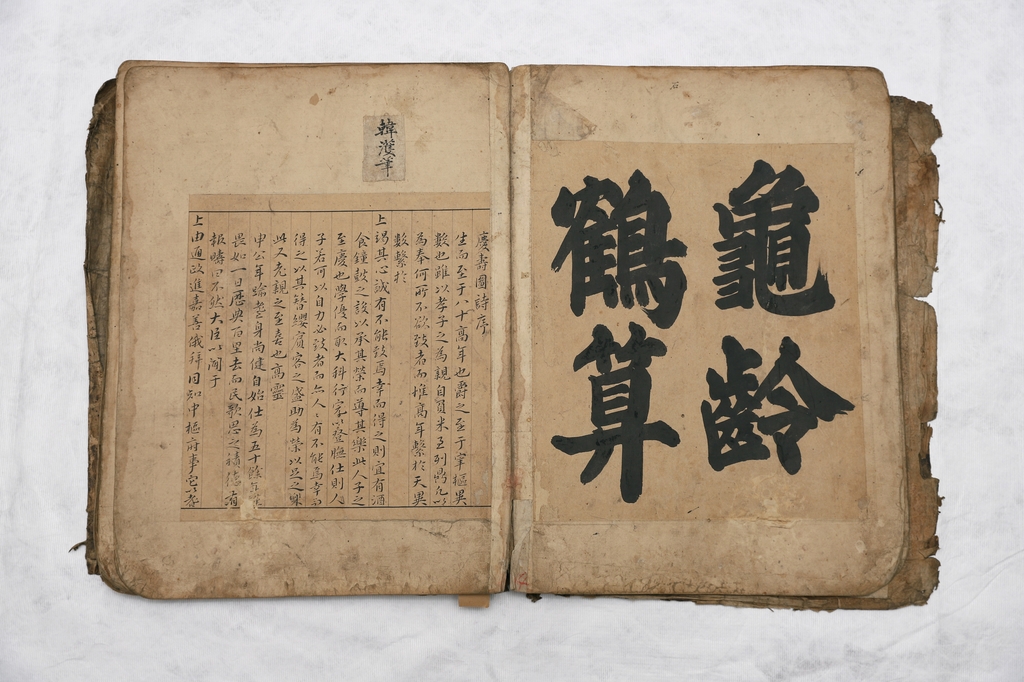 龜齡
鶴算
韓濩筆
慶壽圖詩序
生而至于八十高年也爵之至于宰樞異
數也雖以孝子之為親自負米至列鼎凡以
為奉何所不欲致者而惟高年繫於天異
數繫於
上竭其心誠有不能致焉幸而得之則宜有酒
食鍾鼓之設以承其榮而尊其樂此人子之
至慶也學優而取大科行家以登膴仕則人
子若可以自力必致者而亦人人有不能焉幸而
得之以其簪纓賓客之盛助為榮以足之樂
此又老親之至喜也高靈
申公年踰耋身尚健自始仕為五十餘年
畏如一日歷典百里去而民歌思之績德有
報疇曰不然大臣以聞于
上由通政進嘉善俄拜同知中樞府事官以耆